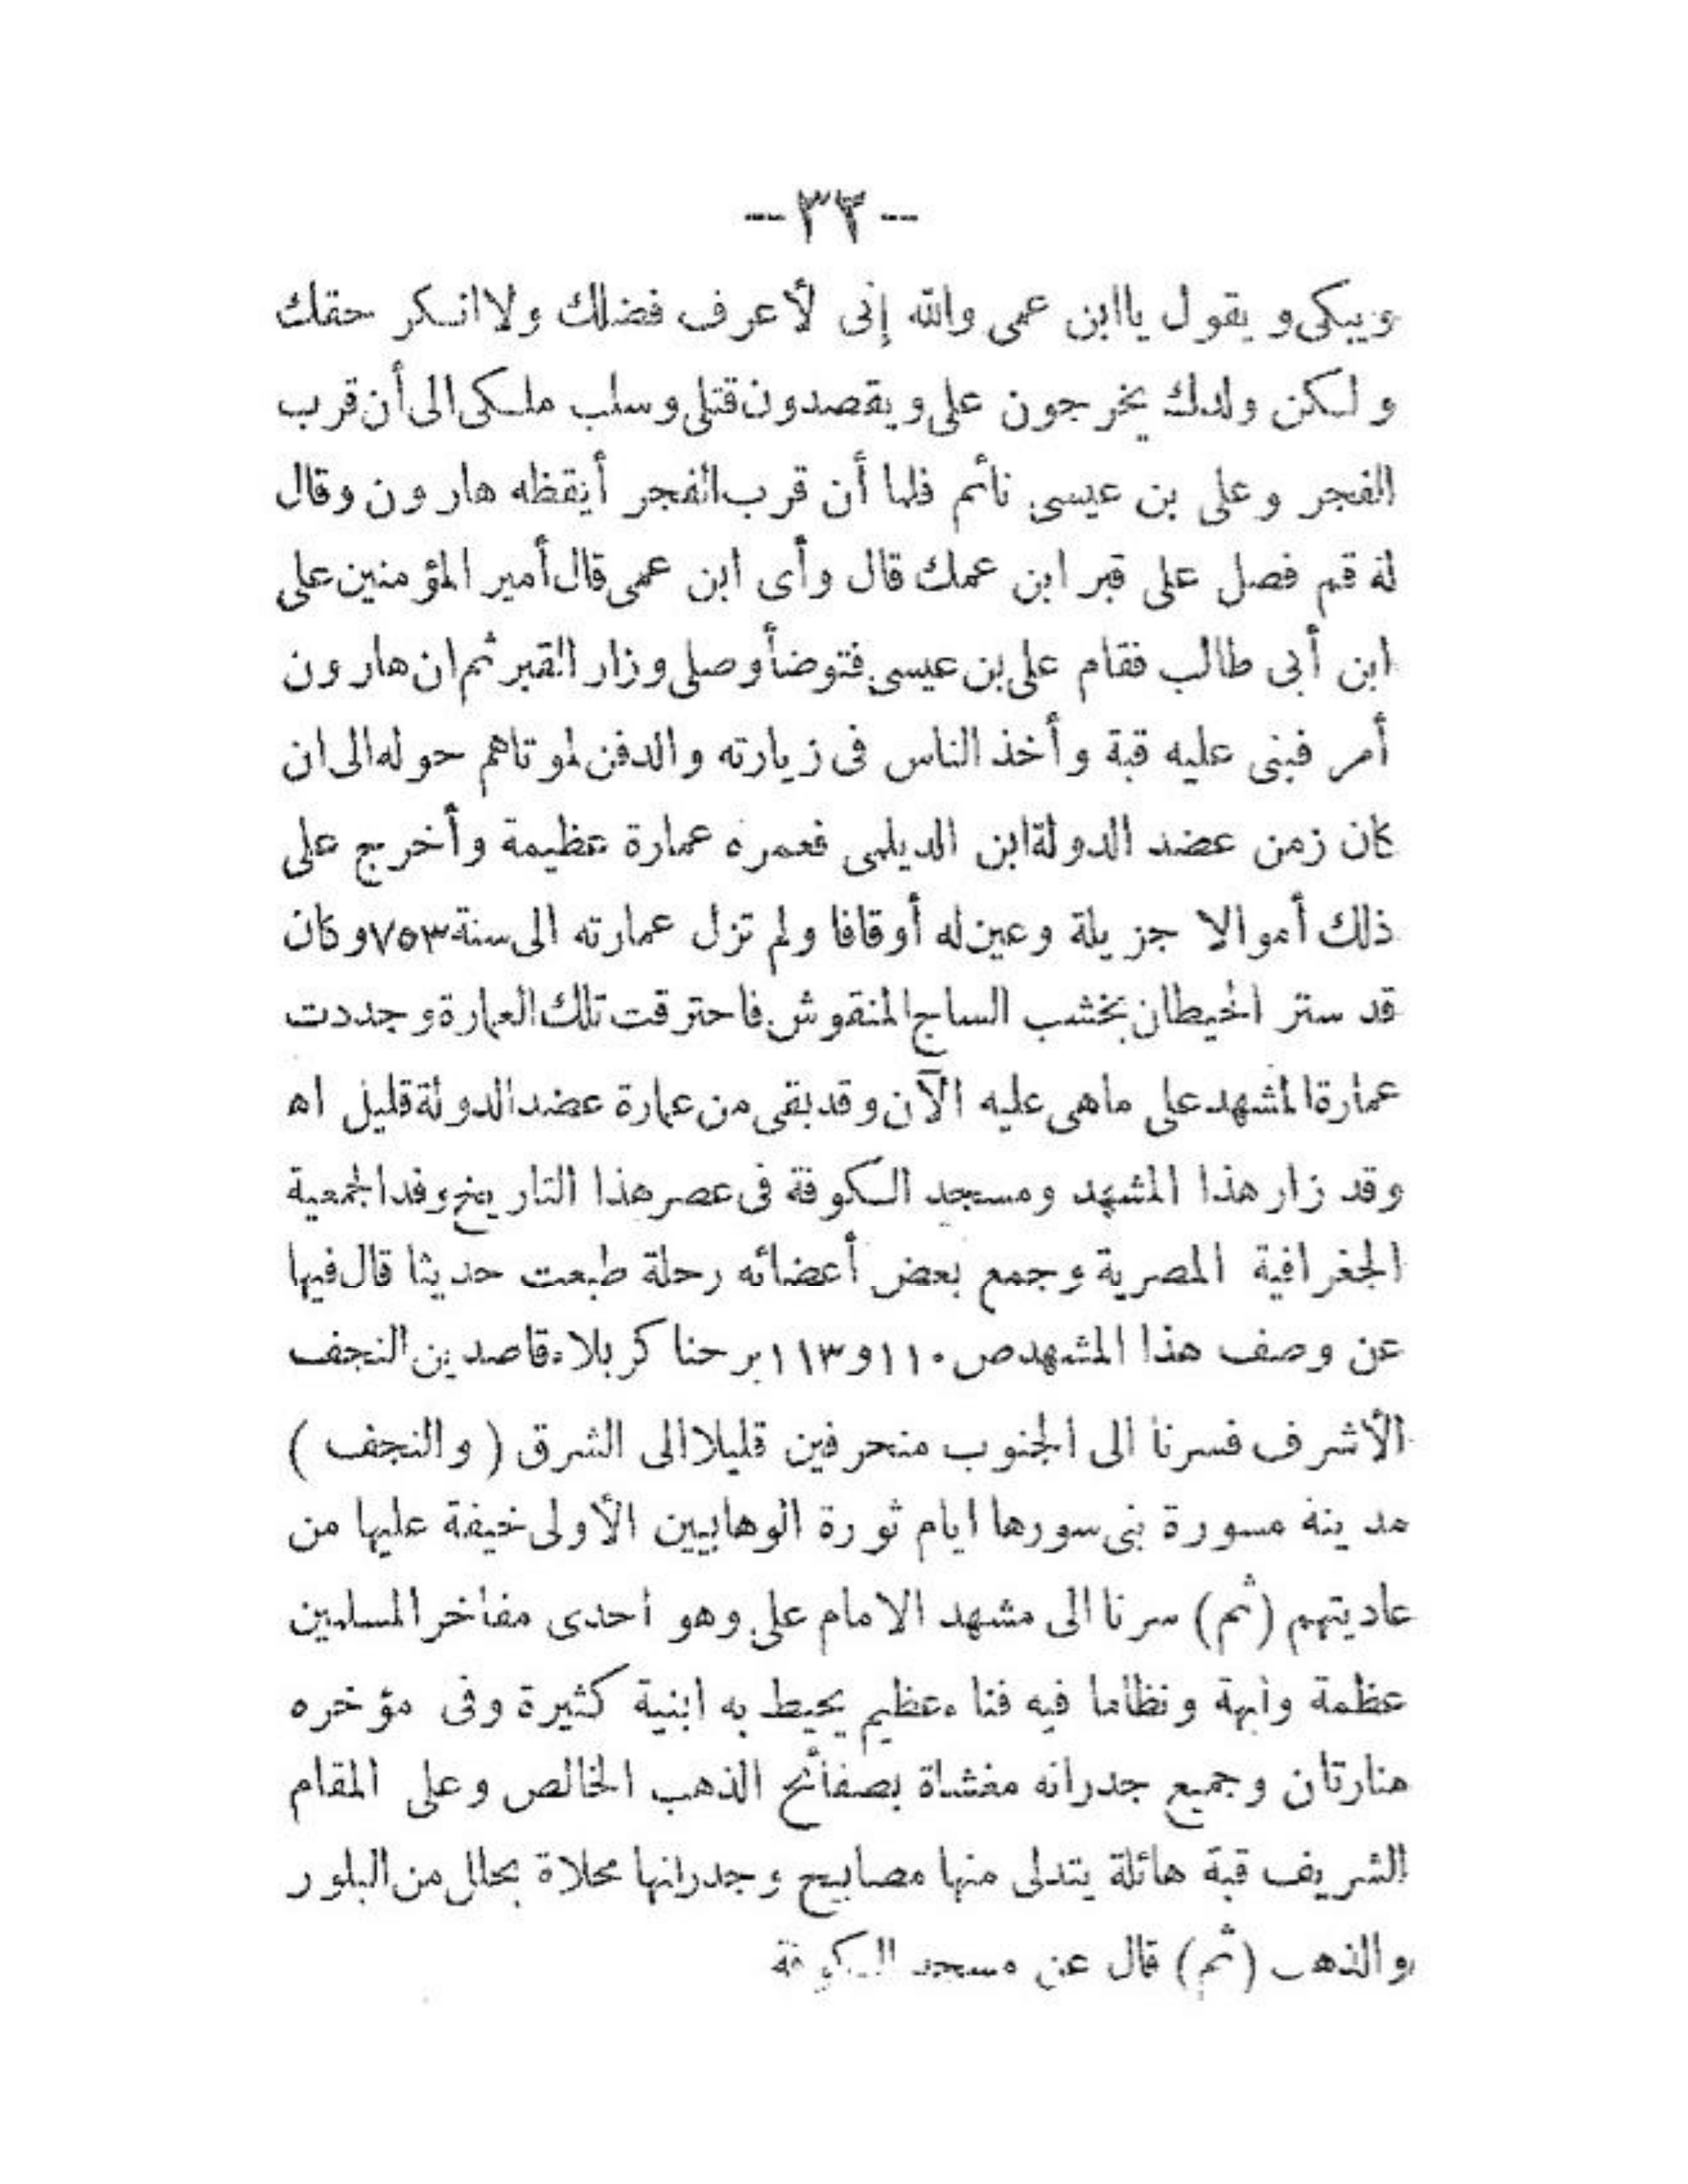 -- ٣٣ --
ويبكى و يقول ياابن عمى والله إنى لأعرف فضلك ولاانكر حقك
ولكن ولدك يخرجون على ويقصدون قتلى وسلب ملكى الى أن قرب
الفجر وعلى بن عيسى نائم فلما أن قرب الفجر أيقظه هارون وقال
له قم فصل على قبر ابن عمك قال وأى ابن عمى قال أمير المؤمنين على
ابن أبى طالب فقام على بن عيسى فتوضأ وصلى وزار القبر ثم ان هارون
أمر فبنى عليه قبة وأخذ الناس فى زيارته والدفن لموتاهم حوله الى ان
كان زمن عضد الدولة ابن الديلمى فعمره عمارة عظيمة وأخرج على
ذلك أموالا جزيلة وعين له أوقافا ولم تزل عمارته الى سنة ٧٥٣ وكان
قد ستر الحيطان بخشب الساج المنقوش فاحترقت تلك العمارة وجددت
عمارة المشهد على ماهى عليه الآن وقد بقى من عمارة عضد الدولة قليل اه
وقد زار هذا المشهد ومسجد الكوفة فى عصر هذا التاريخ وفد الجمعية
الجغرافية المصرية وجمع بعض أعضائه رحلة طبعت حديثا قال فيها
عن وصف هذا المشهد ص ١١٠ و ١١٣ برحنا كربلاء قاصدين النجف
الأشرف فسرنا الى الجنوب منحرفين قليلا الى الشرق ( والنجف )
مدينة مسورة بنى سورها ايام ثورة الوهابيين الأولى خيفة عليها من
عاديتهم (ثم) سرنا الى مشهد الامام على وهو احدى مفاخر المسلمين
عظمة وابهة ونظاما فيه فناء عظيم يحيط به ابنية كثيرة وفى مؤخره
منارتان وجميع جدرانه مغشاة بصفائح الذهب الخالص وعلى المقام
الشريف قبة هائلة يتدلى منها مصابيح وجدرانها محلاة بحلل من البلور
والذهب (ثم) قال عن مسجد الكوفة